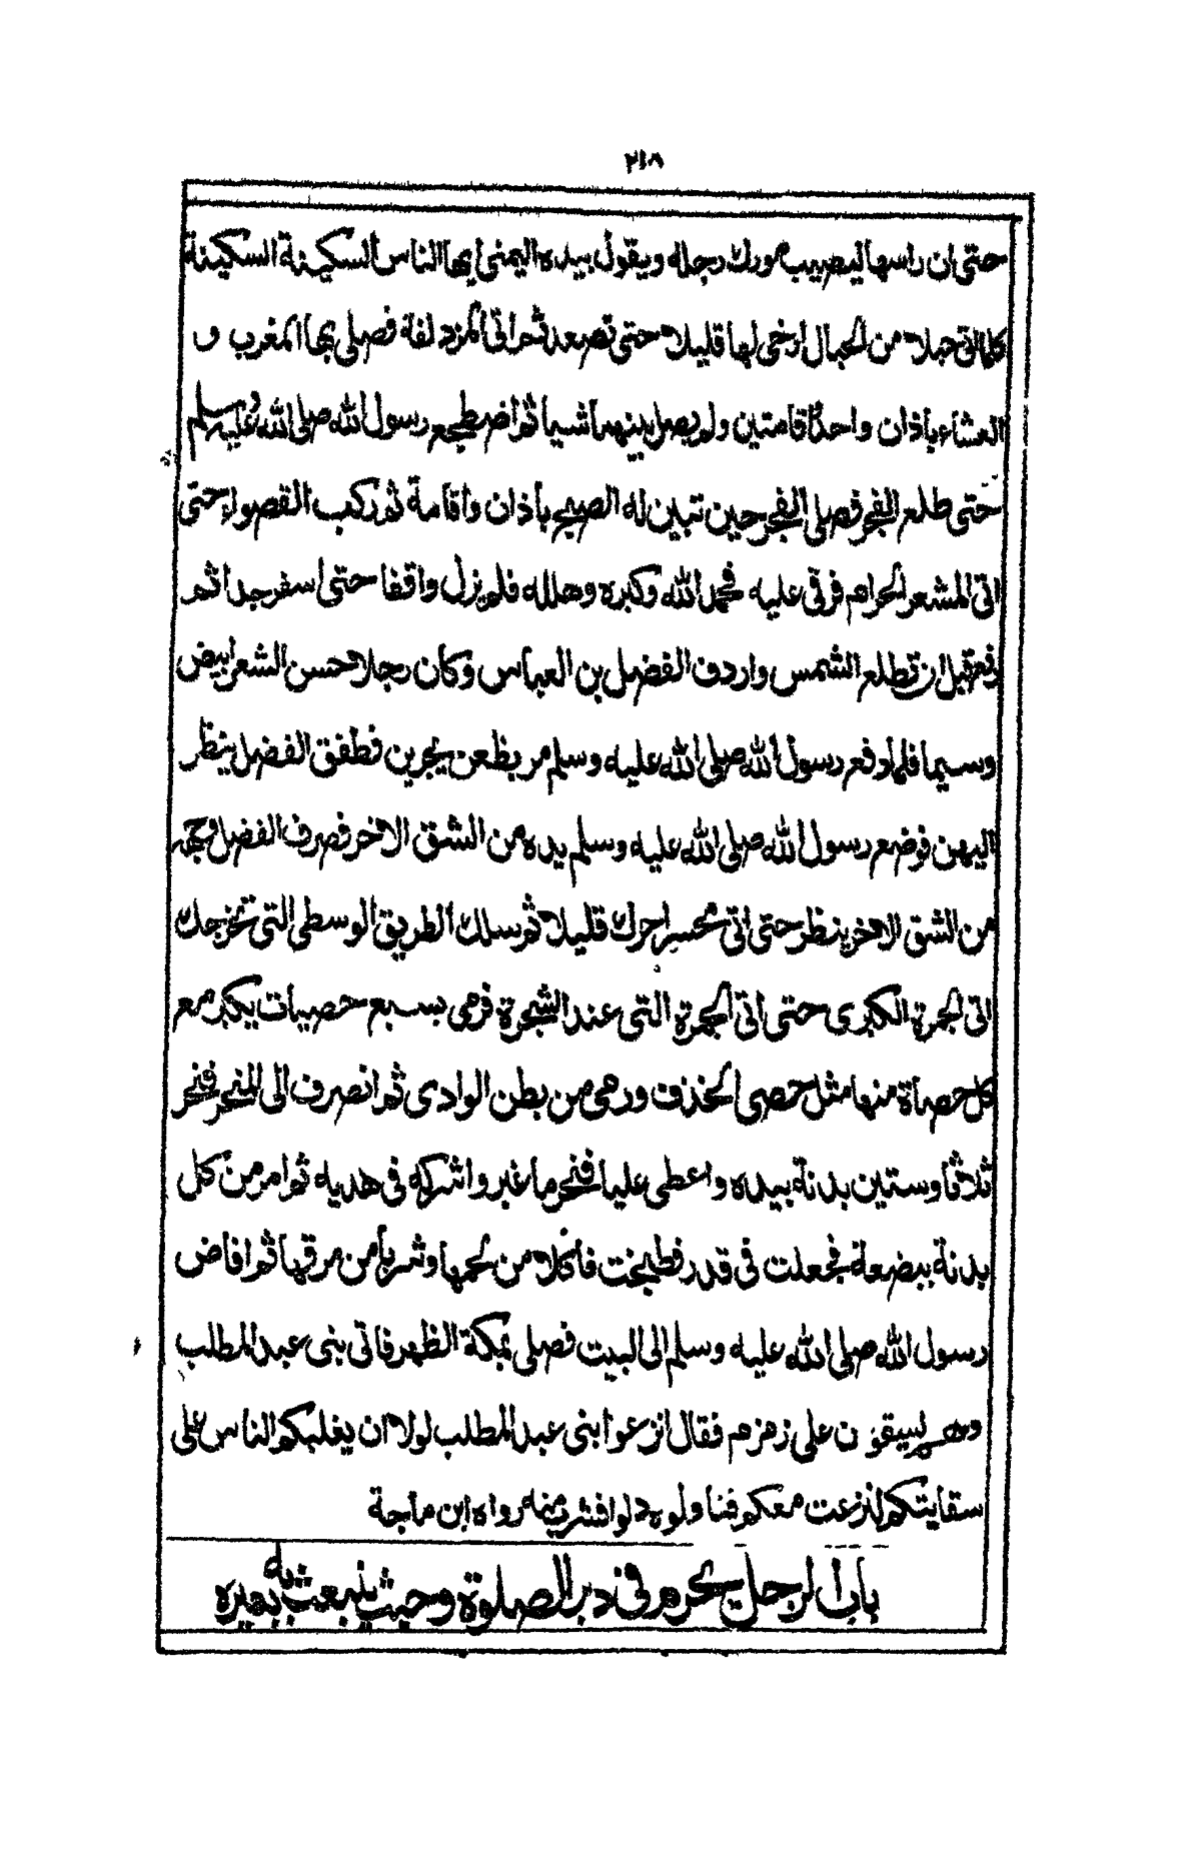 ٢١٨
حتى ان راسها ليصيب مورك رجله ويقول بيده اليمنى ايها الناس السكينة السكينة
كلما اتى حبلا من الحبال ارخى لها قليلا حتى تصعد ثم اتى المزدلفة فصلى بها المغرب و
العشاء باذان واحد واقامتين ولم يصل بينهما شيأ ثم اضطجع رسول الله صلى الله عليه وسلم
حتى طلع الفجر فصلى الفجر حين تبين له الصبح باذان واقامة ثم ركب القصواء حتى
اتى المشعر الحرام فرقى عليه فحمد الله وكبره وهلله فلم يزل واقفا حتى اسفر جدا ثم
دفع قبل ان تطلع الشمس واردف الفضل بن العباس وكان رجلا حسن الشعر ابيض
وسيما فلما دفع رسول الله صلى الله عليه وسلم مر بظعن يجرين فطفق الفضل ينظر
اليهن فوضع رسول الله صلى الله عليه وسلم يده من الشق الاخر فصرف الفضل وجهه
من الشق الاخر ينظر حتى اتى محسرا حرك قليلا ثم سلك الطريق الوسطى التى تخرجك
الى الجمرة الكبرى حتى اتى الجمرة التى عند الشجرة فرمى بسبع حصيات يكبر مع
كل حصاة منها مثل حصى الخذف ورمى من بطن الوادى ثم انصرف الى المنحر فنحر
ثلاثا وستين بدنة بيده واعطى عليا فنحر ما غبر واشركه فى هديه ثم امر من كل
بدنة ببضعة فجعلت فى قدر فطبخت فأكلا من لحمها وشربا من مرقها ثم افاض
رسول الله صلى الله عليه وسلم الى البيت فصلى بمكة الظهر فاتى بنى عبد المطلب
وهم يسقون على زمزم فقال انزعوا بنى عبد المطلب لولا ان يغلبكم الناس على
سقايتكم لنزعت معكم فناولوه دلوا فشرب منه رواه ابن ماجة
باب الرجل يحرم فى دبر الصلوة وحيث ينبعث به بعيره